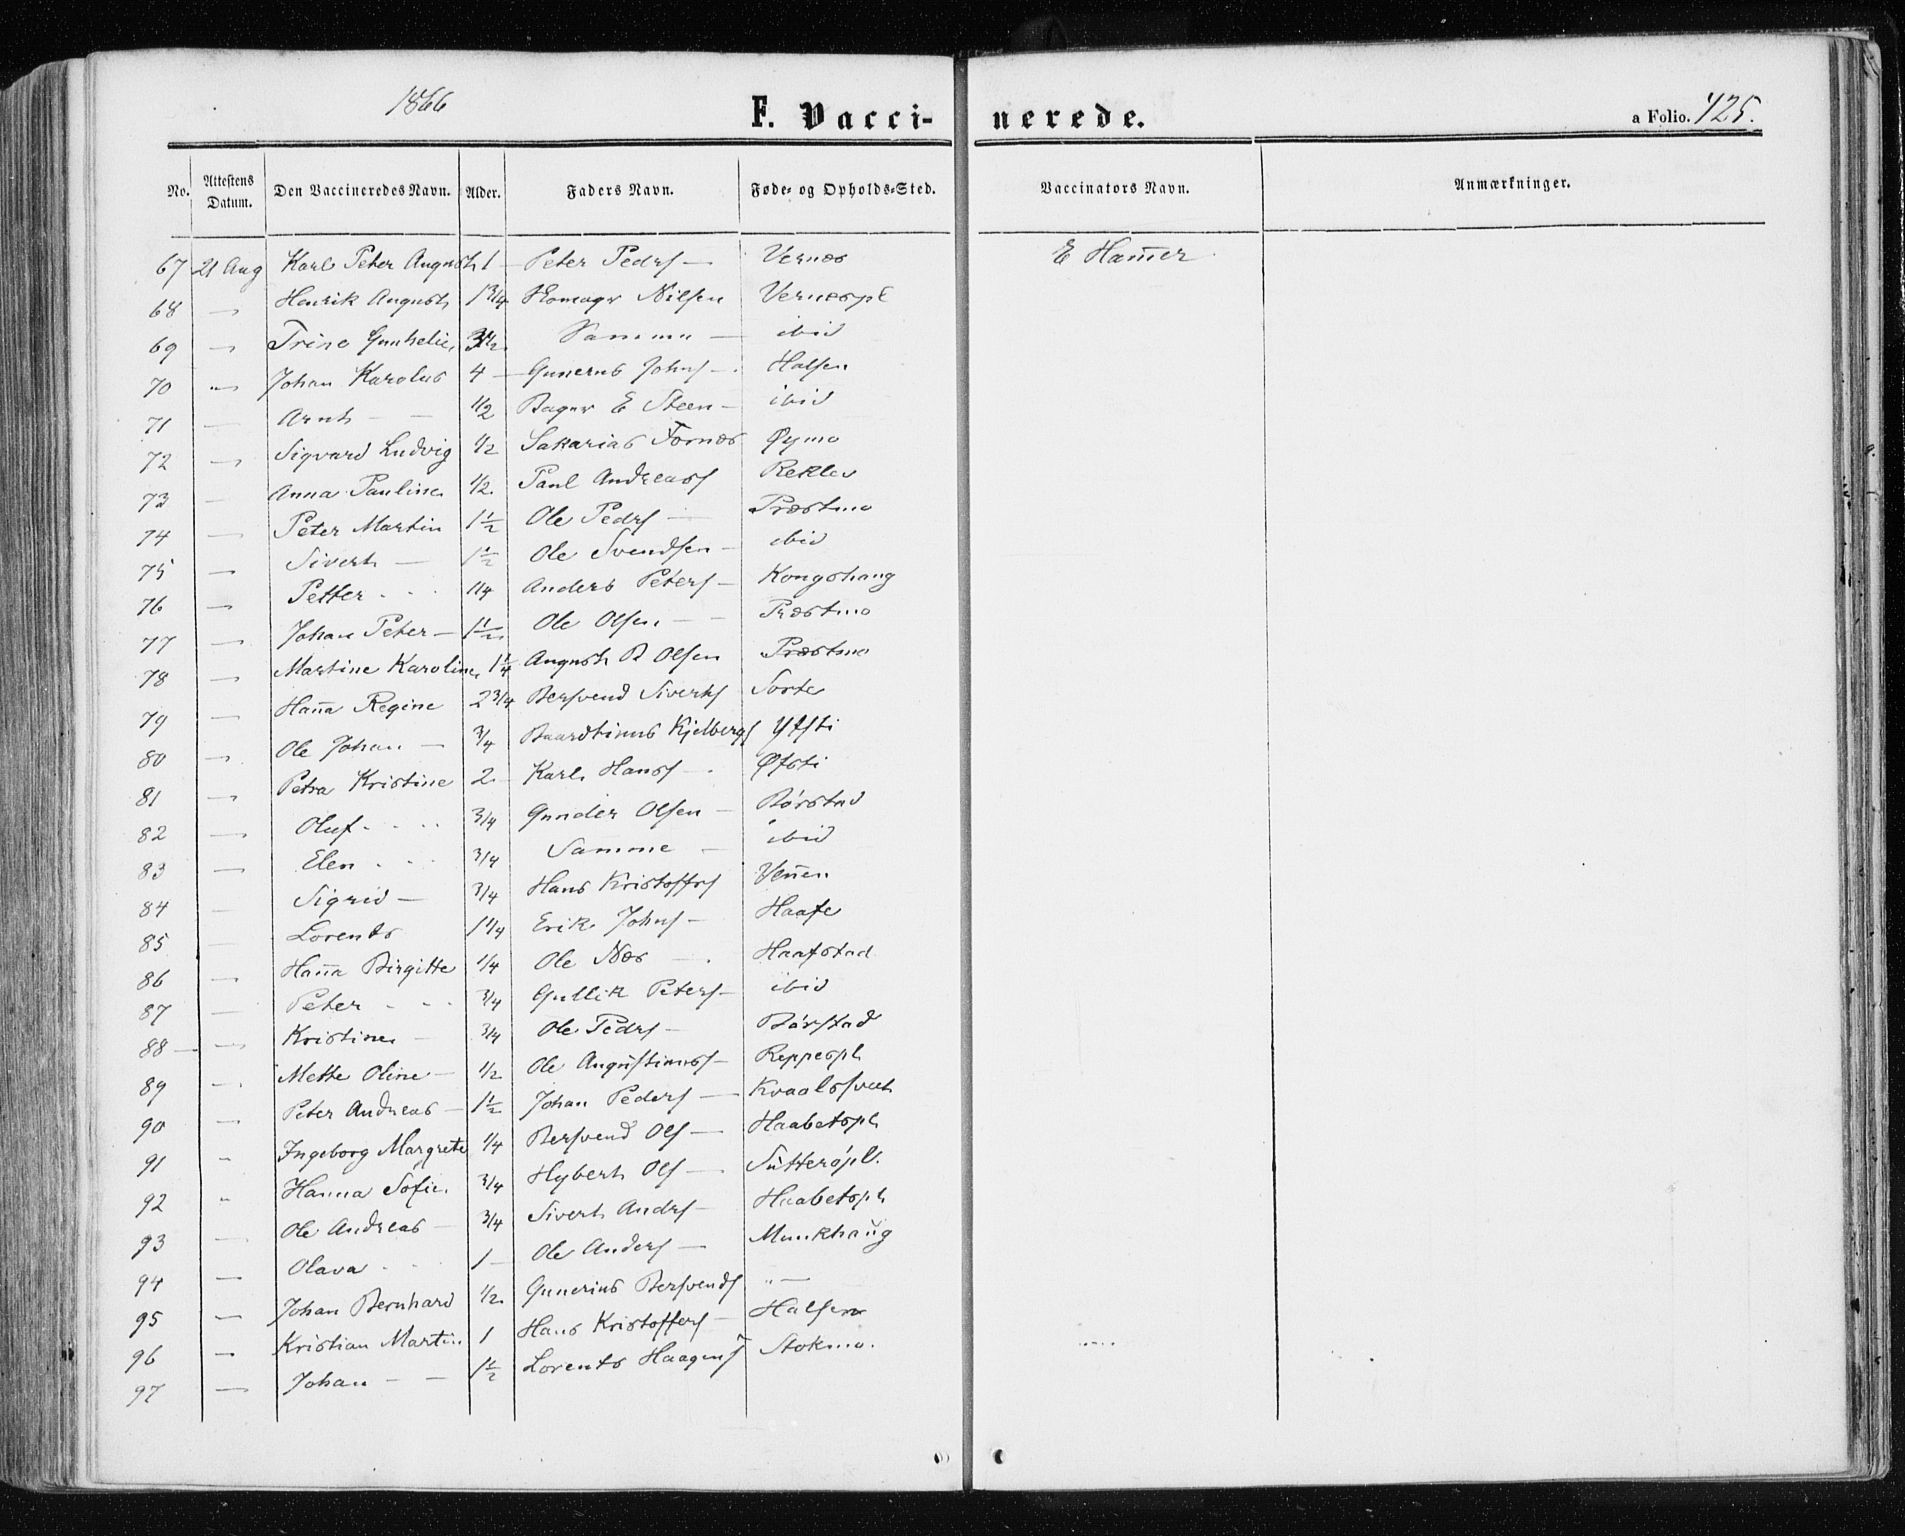 1866
F. Vaccinerede.
a Folio. 425.
No. Attestens Datum. Den Vaccineredes Navn. Alder. Faders Navn. Føde- og Opholds-Sted. Vaccinators Navn. Anmærkninger.
67 21 Aug Karl Peter August 1 — Peter Peders — Vernæs E Ham̄er
68 — Henrik August 1 3/4 Nilsen Vernæspl
69 — Trine 3 1/2 Samme — ibid
70 — Johan Karolus 4 — Gunerus Johns — Halsen
71 — Arnt — — 1/2 E Steen — ibid
72 — Sigvard Ludvig 1/2 Sakarias Fornæs Øymo
73 — Anna Pauline 1/2 Paul Andreass Reklev
74 — Peter Martin 1 1/2 Ole Peders — Præstmo
75 — Sivert — 1 1/2 Ole Svendsen — ibid
76 — Petter 1/4 Anders Peters — Kongshaug
77 — Johan Peter — 1 1/2 Ole Olsen — — Præstmo
78 — Martine Karoline 1 1/4 August B Olsen Præstmo
79 — Han̄a Regine 2 3/4 Bersvend Siverts Sorte
80 — Ole Johan — 3/4 Baardtinus Kjelbergs Ytsti
81 — Petra Kristine 2 — Karl Hans — Øfsti
82 — Oluf 3/4 Gunder Olsen — Børstad
83 — Elen 3/4 Samme — ibid
84 — Sigrid — 3/4 Hans Kristoffs Ven̄en
85 — Lorents 1 1/4 Erik Johns — Haafe
86 — Han̄a Birgitte 1/4 Ole Næs — Haafstad
87 — Peter 3/4 Gullik Peters — ibid
88 — Kristine — 3/4 Ole Peders — Børstad
89 — Mette Oline — 1/2 Ole Augustinuss — Reppespl
90 — Peter Andreas — 1 1/2 Johan Peders — Kvaalsveet
91 " Ingeborg Margrete 1/4 Bersvend Ols — Haabetspl
92 " Hanna Sofie 3/4 Hybert Ols — Sutterøpl.
93 — Ole Andreas — 3/4 Sivert Anders — Haabetspl
94 — Olava 1 — Ole Anders — Munkhaug
95 — Johan Bernhard 1/2 Gunerius Bersvends " —
96 — Kristian Martin 1 Hans Kristoffers — Halsen
97 — Johan — — 1 1/2 Lorents Haagens Stokmo.